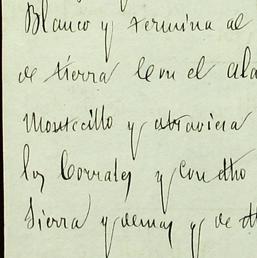 Blanco y termina al
de tierra con el ala
Montecillo y atraviesa
los Corrales y con dho
Sierra y demas y de